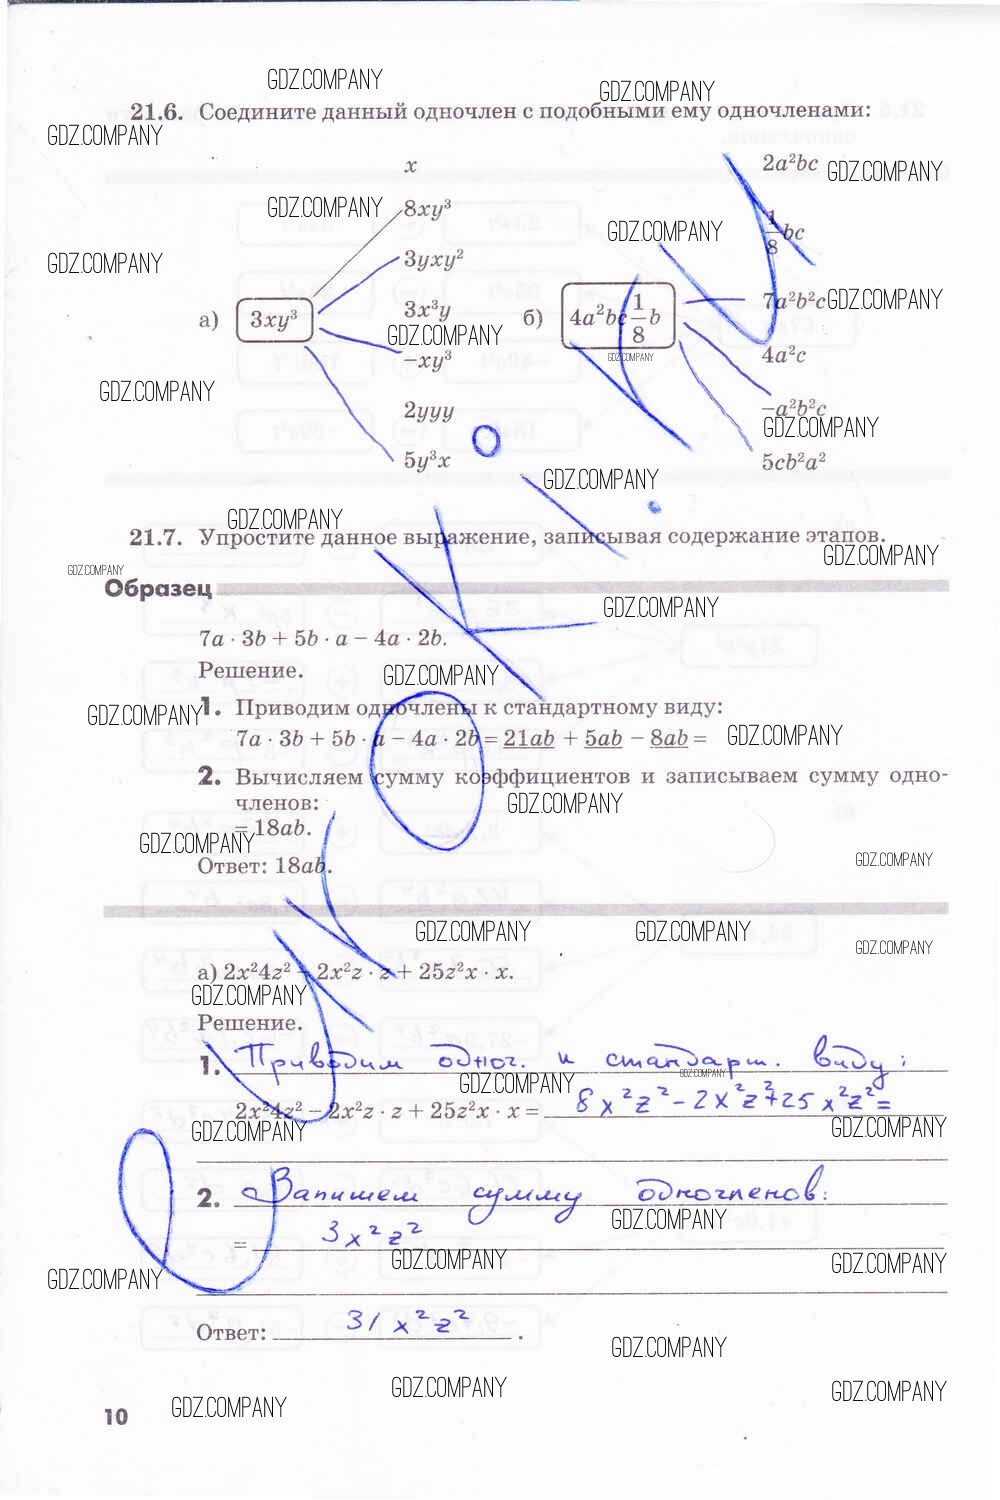 21.6. Соедините данный одночлен с подобными ему одночленами:
а) 3xy³
x
8xy³
3yxy²
3x³y
−xy³
2yyy
5y³x
б) 4a²bc 1/8 b
2a²bc
1/8 bc
7a²b²c
4a²c
−a²b²c
5cb²a²
21.7. Упростите данное выражение, записывая содержание этапов.
Образец
7a · 3b + 5b · a − 4a · 2b.
Решение.
1. Приводим одночлены к стандартному виду:
7a · 3b + 5b · a − 4a · 2b = 21ab + 5ab − 8ab =
2. Вычисляем сумму коэффициентов и записываем сумму одно-
членов:
= 18ab.
Ответ: 18ab.
а) 2x²4z² − 2x²z · z + 25z²x · x.
Решение.
1. Приводим одноч. к стандарт. виду:
2x²4z² − 2x²z · z + 25z²x · x = 8x²z² − 2x²z² + 25x²z² =
2. Запишем сумму одночленов:
= 3x²z²
Ответ: 31x²z².
10
GDZ.COMPANY